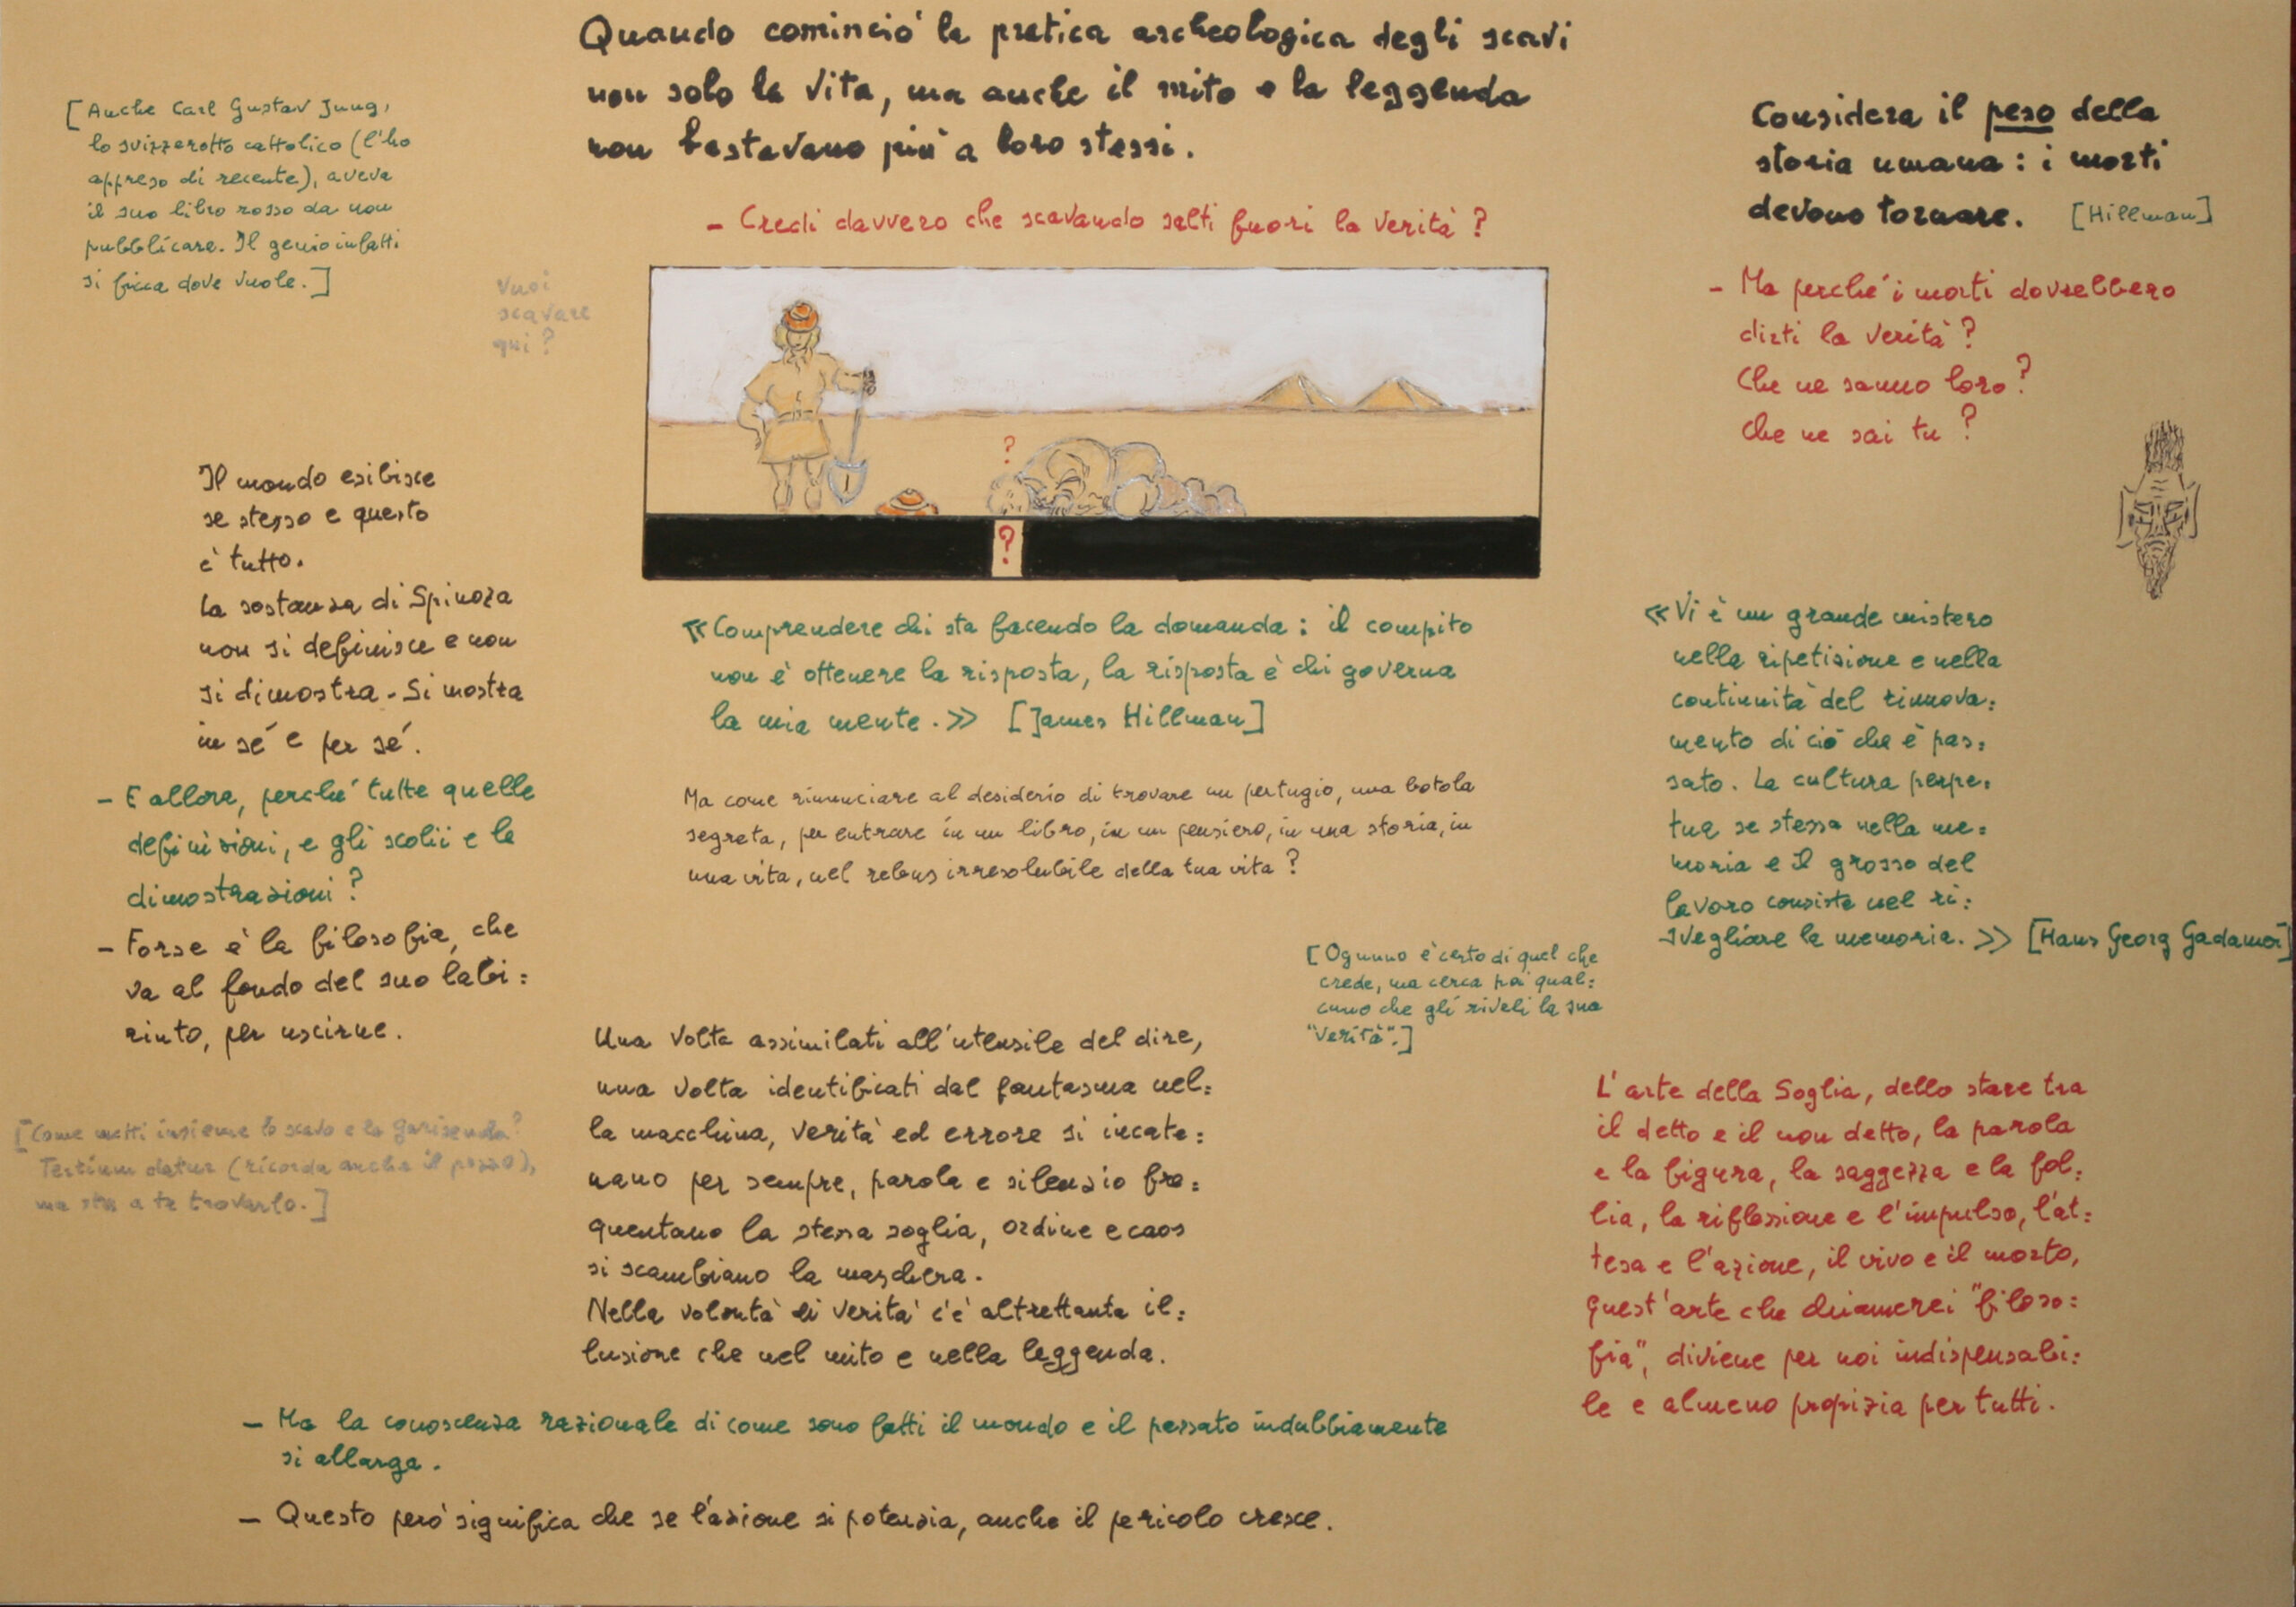 Quando cominciò la pratica archeologica degli scavi
non solo la vita, ma anche il mito e la leggenda
non bastavano più a loro stessi.
- Credi davvero che scavando salti fuori la verità?
[Anche Carl Gustav Jung,
lo svizzerotto cattolico (l'ho
appreso di recente), aveva
il suo libro rosso da non
pubblicare. Il genio infatti
si ficca dove vuole.]
Vuoi
scavare
qui?
Considera il peso della
storia umana: i morti
devono tornare. [Hillman]
- Ma perché i morti dovrebbero
dirti la verità?
Che ne sanno loro?
Che ne sai tu?
?
?
Il mondo esibisce
se stesso e questo
è tutto.
La sostanza di Spinoza
non si definisce e non
si dimostra - Si mostra
in sé e per sé.
- E allora, perché tutte quelle
definizioni, e gli scolii e le
dimostrazioni?
- Forse è la filosofia, che
va al fondo del suo labi=
rinto, per uscirne.
[Come metti insieme lo scavo e la garisenda?
Tertium datur (ricorda anche il pozzo),
ma sta a te trovarlo.]
«Comprendere chi sta facendo la domanda: il compito
non è ottenere la risposta, la risposta è chi governa
la mia mente.» [James Hillman]
Ma come rinunciare al desiderio di trovare un pertugio, una botola
segreta, per entrare in un libro, in un pensiero, in una storia, in
una vita, nel rebus irresolubile della tua vita?
[Ognuno è certo di quel che
crede, ma cerca poi qual=
cuno che gli riveli la sua
"verità".]
Una volta assimilati all'utensile del dire,
una volta identificati dal fantasma nel=
la macchina, verità ed errore si incate=
nano per sempre, parola e silenzio fre=
quentano la stessa soglia, ordine e caos
si scambiano la maschera.
Nella volontà di verità c'è altrettanta il=
lusione che nel mito e nella leggenda.
- Ma la conoscenza razionale di come sono fatti il mondo e il passato indubbiamente
si allarga.
- Questo però significa che se l'azione si potenzia, anche il pericolo cresce.
«Vi è un grande mistero
nella ripetizione e nella
continuità del rinnova=
mento di ciò che è pas=
sato. La cultura perpe=
tua se stessa nella me=
moria e il grosso del
lavoro consiste nel ri=
svegliare la memoria.» [Hans Georg Gadamer]
L'arte della Soglia, dello stare tra
il detto e il non detto, la parola
e la figura, la saggezza e la fol=
lia, la riflessione e l'impulso, l'at=
tesa e l'azione, il vivo e il morto,
quest'arte che chiamerei "filoso=
fia", diviene per noi indispensabi=
le e almeno propizia per tutti.